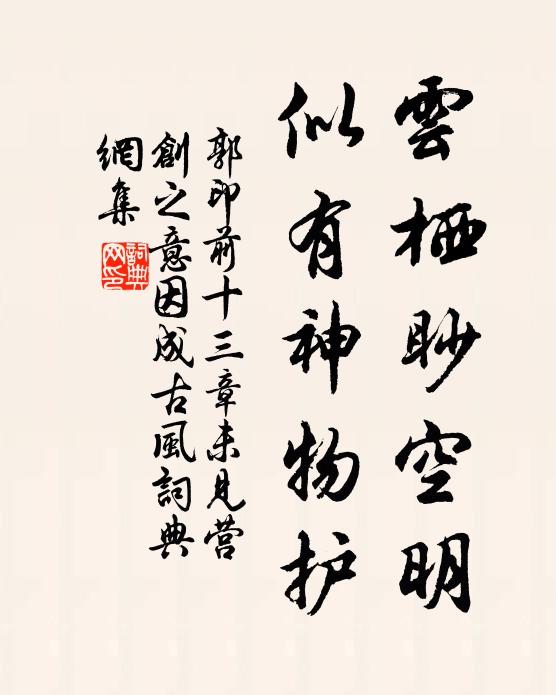 雲栖眇空明
似有神物护
郭印前十三章未見营
創之意因成古風詞典
網集
詞典網印